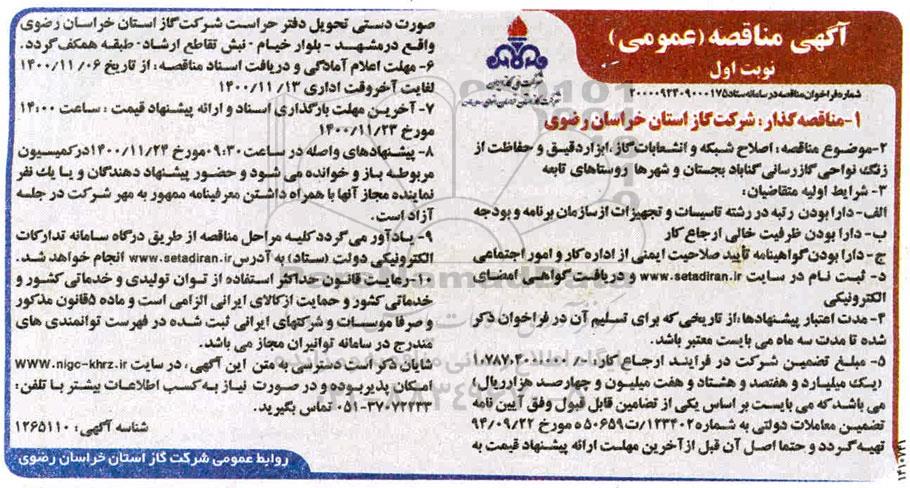 آگهی مناقصه (عمومی)
نوبت اول
شماره فراخوان مناقصه در سامانه ستاد ۲۰۰۰۰۹۲۴۰۹۰۰۰۱۷۵
۱-مناقصه گذار: شرکت گاز استان خراسان رضوی
۲-موضوع مناقصه: اصلاح شبکه و انشعابات گاز، ابزار دقیق و حفاظت از
زنگ نواحی گازرسانی گناباد بجستان و شهرها روستاهای تابعه
۳- شرایط اولیه متقاضیان:
الف- دارا بودن رتبه در رشته تاسیسات و تجهیزات از سازمان برنامه و بودجه
ب- دارا بودن ظرفیت خالی ارجاع کار
ج- دارا بودن گواهینامه تأیید صلاحیت ایمنی از اداره کار و امور اجتماعی
د- ثبت نام در سایت www.setadiran.ir و دریافت گواهی امضای
الکترونیکی
۴- مدت اعتبار پیشنهادها: از تاریخی که برای تسلیم آن در فراخوان ذکر
شده تا مدت سه ماه می بایست معتبر باشد.
۵- مبلغ تضمین شرکت در فرایند ارجاع کار
(یک میلیارد و هفتصد و هشتاد و هفت میلیون و چهارصد هزار ریال)
می باشد که می بایست بر اساس یکی از تضامین قابل قبول وفق آیین نامه
تضمین معاملات دولتی به شماره ۱۲۳۴۰۲/ت۵۰۶۵۹ه مورخ ۹۴/۰۹/۲۲
تهیه گردد و حتما اصل آن قبل از آخرین مهلت ارائه پیشنهاد قیمت به
صورت دستی تحویل دفتر حراست شرکت گاز استان خراسان رضوی
واقع در مشهد - بلوار خیام - نبش تقاطع ارشاد - طبقه همکف گردد.
۶- مهلت اعلام آمادگی و دریافت اسناد مناقصه: از تاریخ ۱۴۰۰/۱۱/۰۶
لغایت آخر وقت اداری ۱۴۰۰/۱۱/۱۳
۷- آخرین مهلت بارگذاری اسناد و ارائه پیشنهاد قیمت: ساعت ۱۴:۰۰
مورخ ۱۴۰۰/۱۱/۲۳
۸- پیشنهادهای واصله در ساعت ۰۹:۳۰ مورخ ۱۴۰۰/۱۱/۲۴ در کمیسیون
مربوطه باز و خوانده می شود و حضور پیشنهاد دهندگان و یا یک نفر
نماینده مجاز آنها با همراه داشتن معرفینامه ممهور به مهر شرکت در جلسه
آزاد است.
۹- یادآور می گردد کلیه مراحل مناقصه از طریق درگاه سامانه تدارکات
الکترونیکی دولت (ستاد) به آدرس www.setadiran.ir انجام خواهد شد.
۱۰- رعایت قانون حداکثر استفاده از توان تولیدی و خدماتی کشور و
خدماتی کشور و حمایت از کالای ایرانی الزامی است و ماده ۵ قانون مذکور
و صرفا موسسات و شرکتهای ایرانی ثبت شده در فهرست توانمندی های
مندرج در سامانه توانیران مجاز می باشد.
شایان ذکر است دسترسی به متن این آگهی، در سایت www.nigc-khrz.ir
امکان پذیر بوده و در صورت نیاز به کسب اطلاعات بیشتر با تلفن:
۰۵۱-۳۷۰۷۲۲۳۳ تماس بگیرید.
شناسه آگهی: ۱۲۶۵۱۱۰
روابط عمومی شرکت گاز استان خراسان رضوی